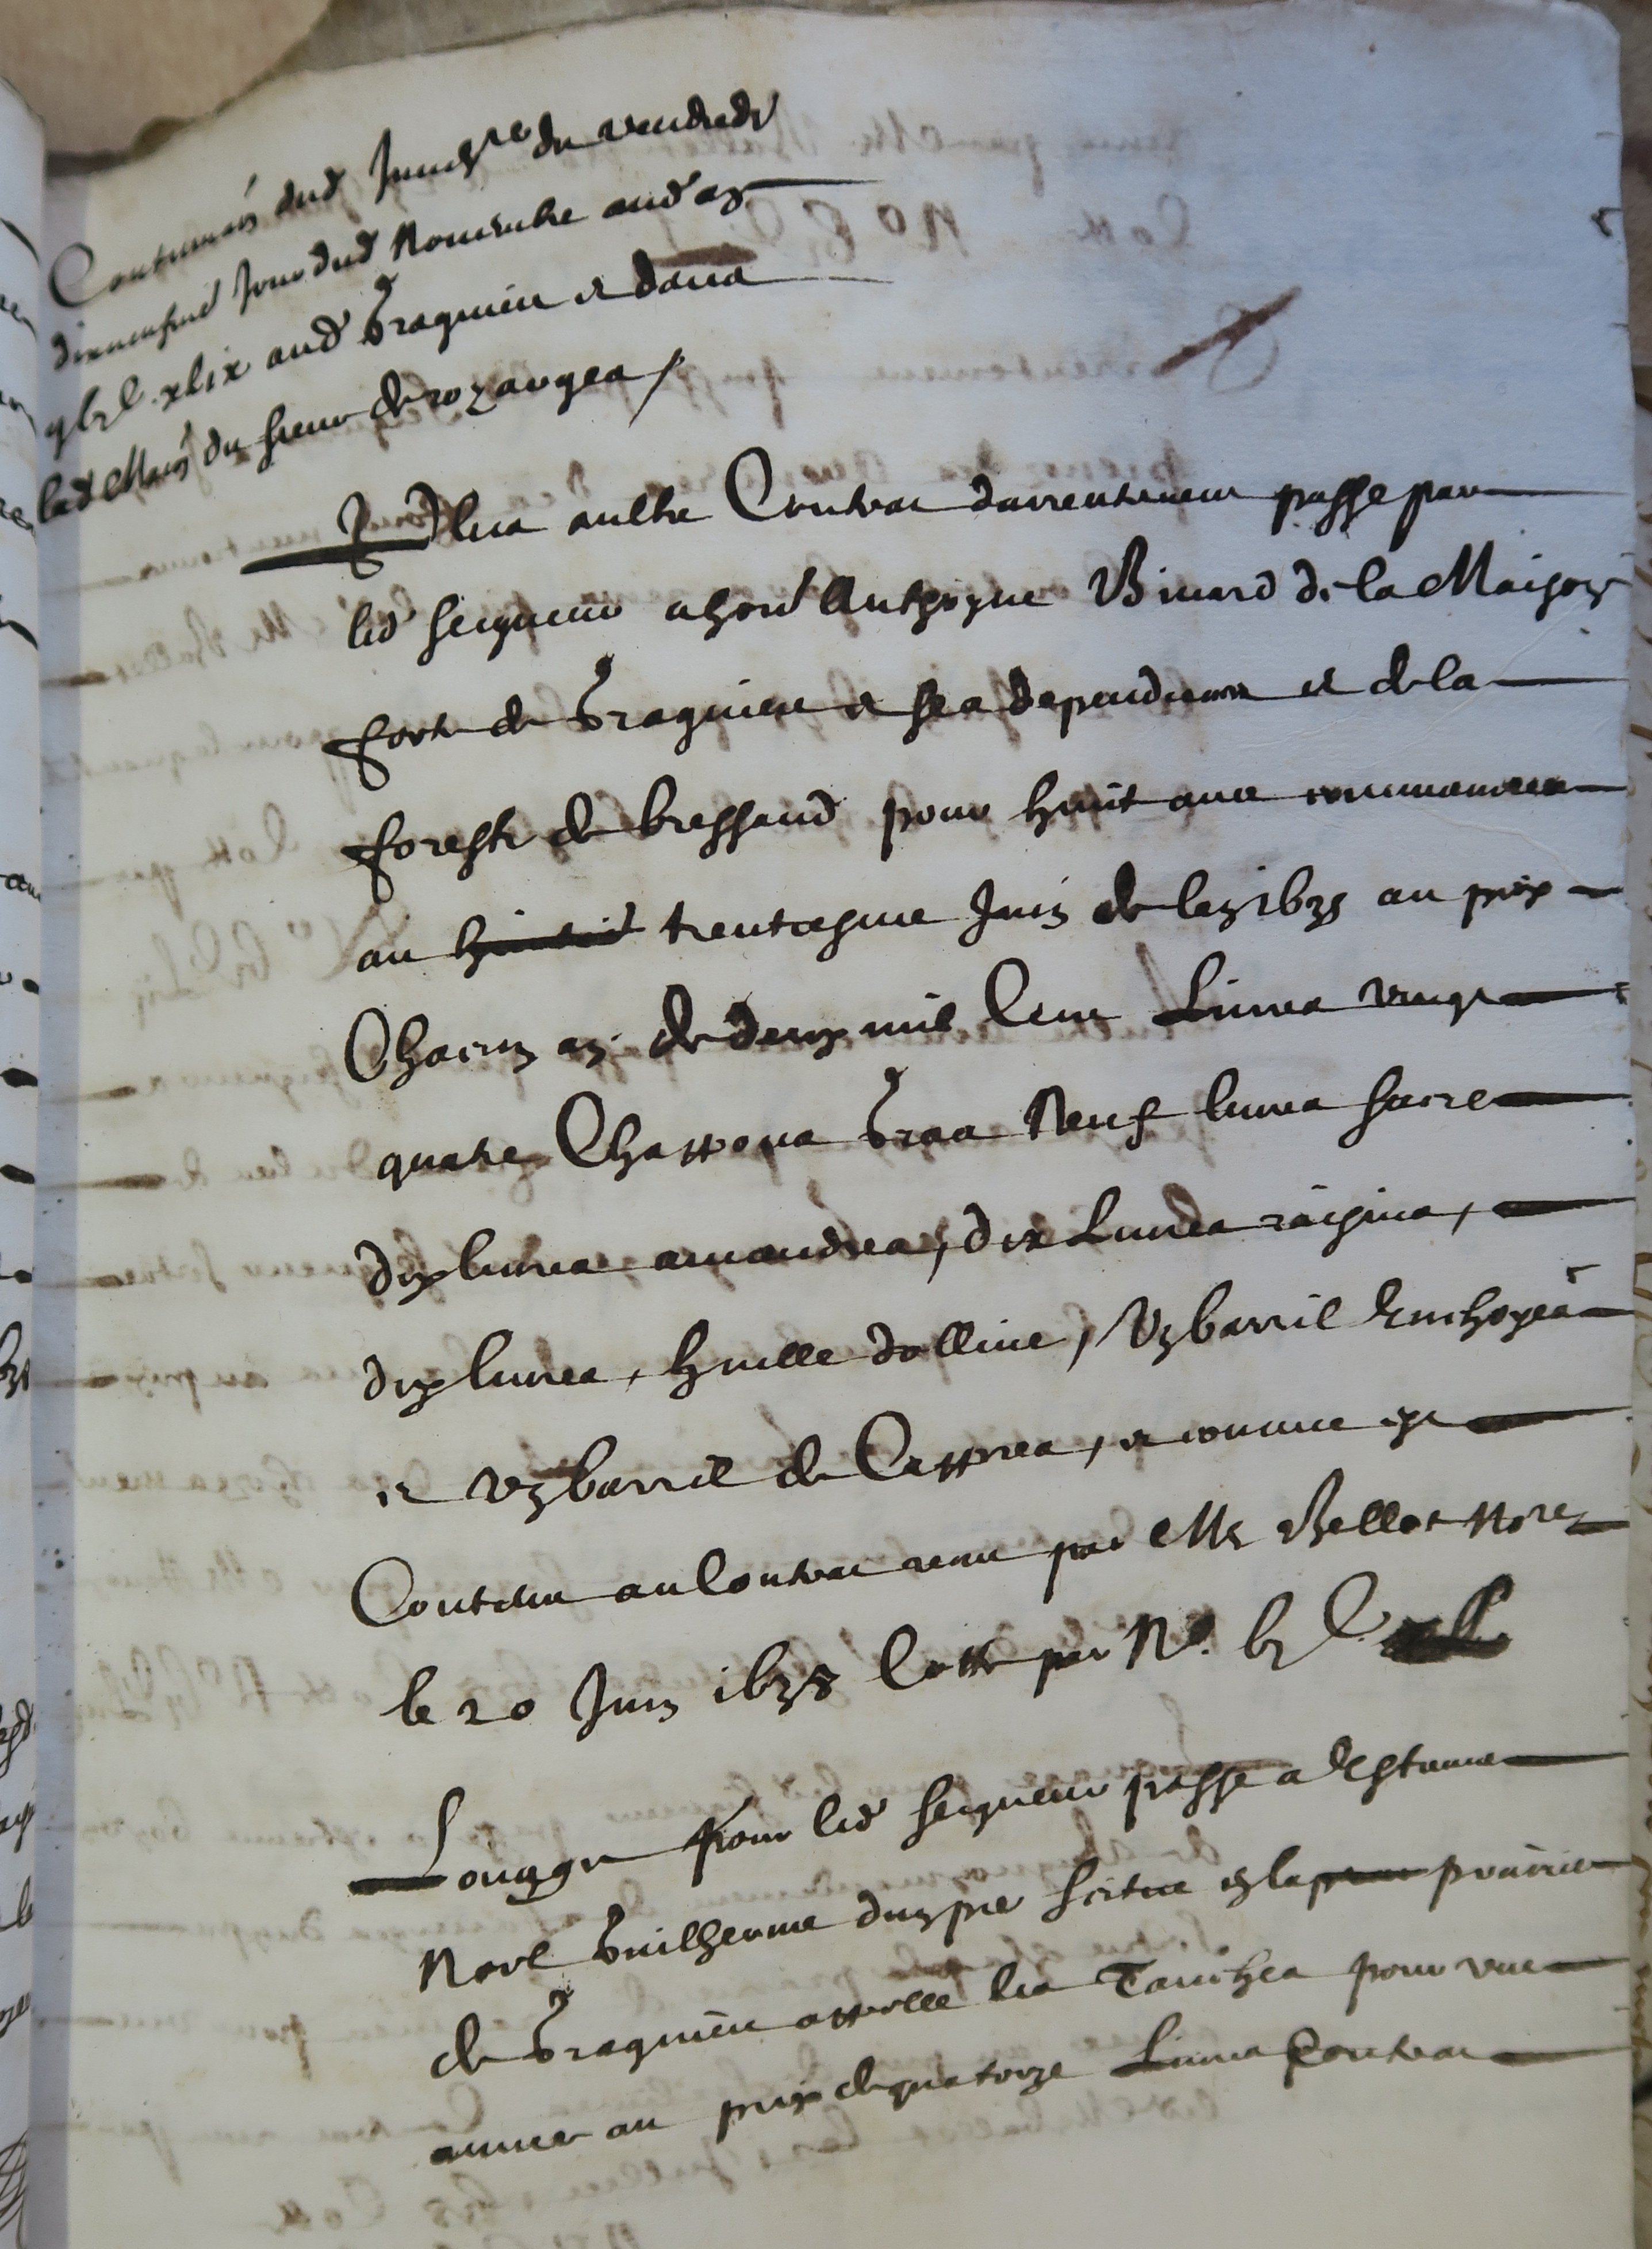 Continua͞on dud Inven͞re du vendredy
dixneufme jour dud Novembre aud an
vjC xlix aud Graguieu et dans
lad Mai͞on du sieur de rozanges /
Plus aultre Contrac darrentement passe par
led seigneur a hon͞e Anthoyne Binard de la Maison
forte de Graguieu et ses dependences et de la
foreste de bressand pour huit ans commances
au trentiesme Juin de lan 1638 au prix
Chacun an de deux mil Cent Livres vingt
quatre Chappons gras Neuf livres sucre
dix livres amandres, dix Livres raisins,
dix livres, huille dollive, Un barril Enchoyes
et un barril de Cappres, et comme est
Contenu au Contrac receu par Me Bellot no͞re
le 20 Juin 1638 Cotte par No. vjC
Louage pour led seigneur passe a Estienne
Noel Guilherme dun pre scitue en la prairie
de Graguieu appelle les Tanches pour une
annee au prix de quatorze Livres Contrac